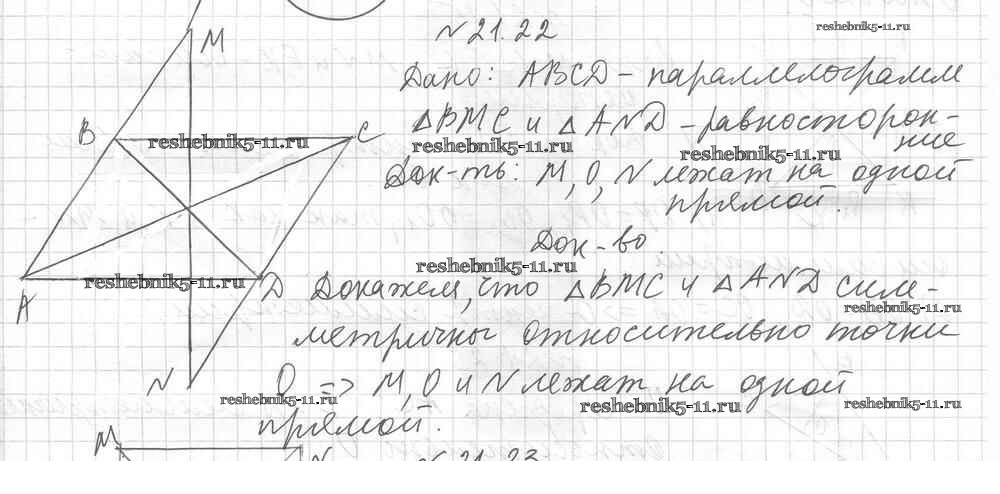 N 21.22
reshebnik5-11.ru
M
Дано: ABCD - параллелограмм
B
C
reshebnik5-11.ru
ΔBMC и ΔAND - равносторон-
ние
reshebnik5-11.ru
reshebnik5-11.ru
Док-ть: M, O, N лежат на одной
прямой.
Док-во.
reshebnik5-11.ru
reshebnik5-11.ru
A
D
Докажем, что ΔBMC и ΔAND сим-
reshebnik5-11.ru
метричны относительно точки
N
O => M, O и N лежат на одной
reshebnik5-11.ru
reshebnik5-11.ru
reshebnik5-11.ru
прямой.
M
N
N 21.23